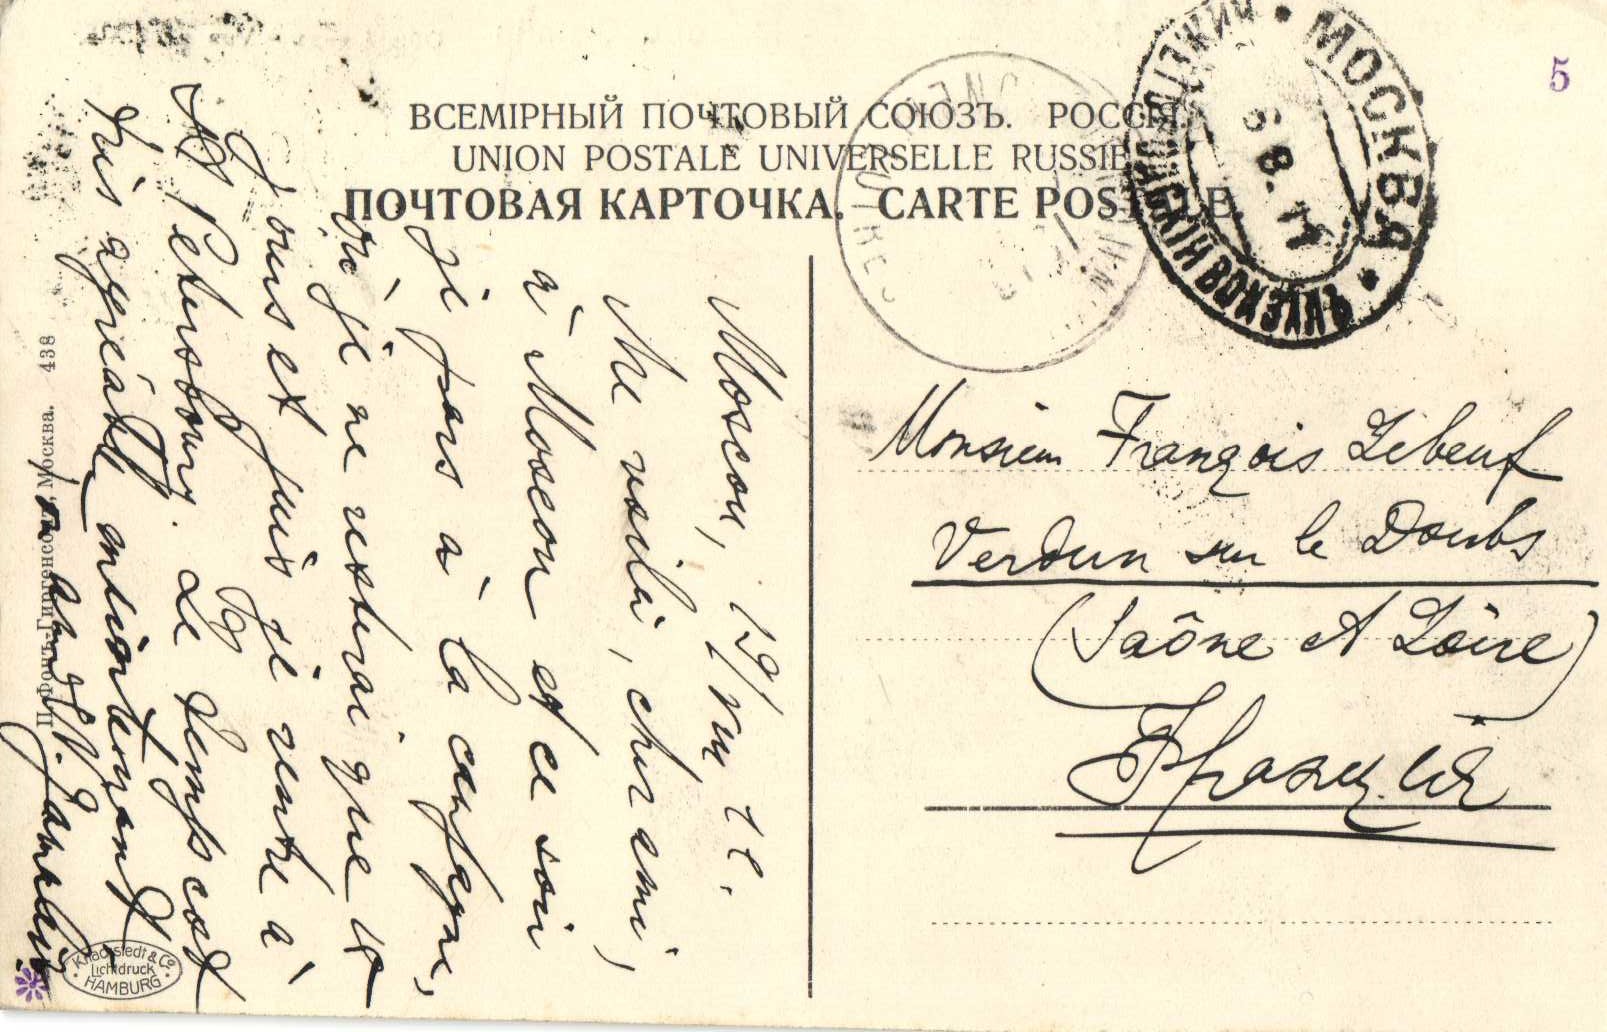 ВСЕМІРНЫЙ ПОЧТОВЫЙ СОЮЗЪ. РОССІЯ.
UNION POSTALE UNIVERSELLE RUSSIE
ПОЧТОВАЯ КАРТОЧКА. CARTE POSTALE.
МОСКВА
6 8. 11
5
Moscou, 19/VII, 11.
Me voilà, cher ami,
à Moscou et ce soir
je pars à la campagne,
où je ne resterai que 4
jours et puis je rentre à
St Petersbourg. Le temps est
très agréable maintenant
Monsieur François Lebeuf
Verdun sur le Doubs
(Saône et Loire)
Франція
Москва. 438
Knackstedt & Co.
Lichtdruck
HAMBURG